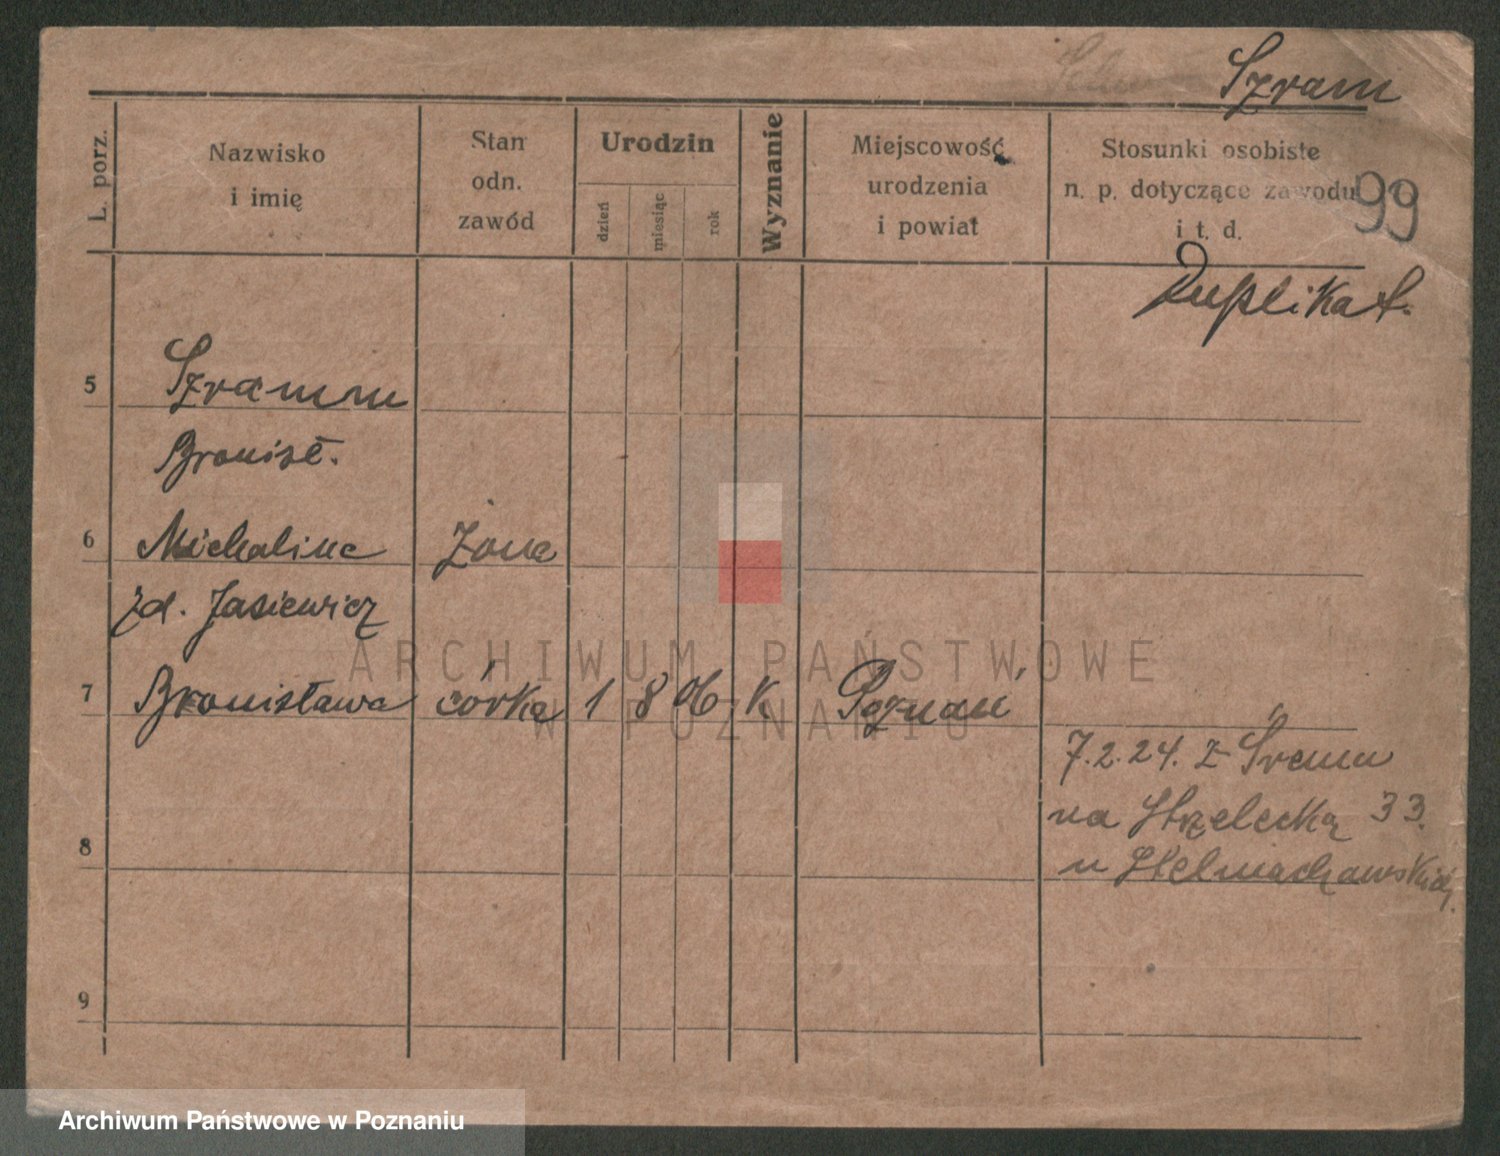 Szram
L. porz.
Nazwisko
i imię
Stan
odn.
zawód
Urodzin
dzień
miesiąc
rok
Wyznanie
Miejscowość
urodzenia
i powiat
Stosunki osobiste
n. p. dotyczące zawodu
i t. d.
99
Duplikat.
5
Szramm
Bronisł.
6
Michalina
żona
zd. Jasiewicz
7
Bronisława
córka
1
8
06
K
Poznań
7.2.24. z Śremu
na Strzelecką 33.
u Stelmachowskiej.
8
9
ARCHIWUM PAŃSTWOWE
W POZNANIU
Archiwum Państwowe w Poznaniu